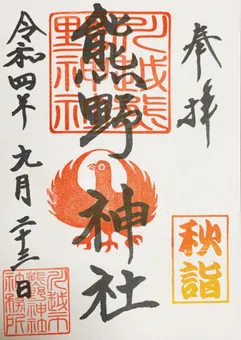 奉拝
川越熊野神社
熊野神社
秋詣
令和四年九月二十三日
川越市熊野神社社務所